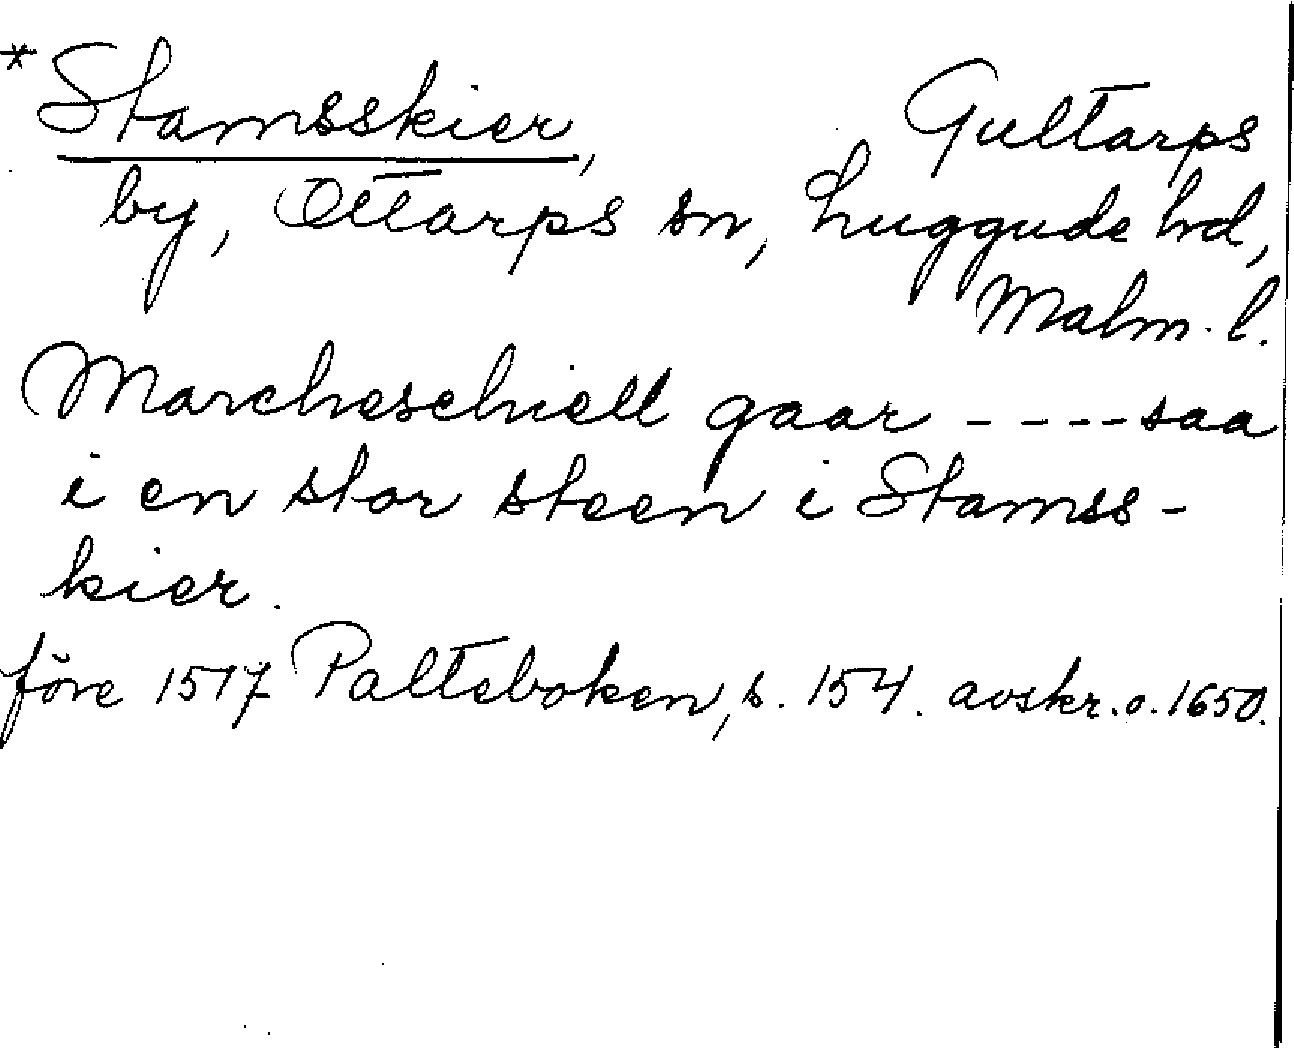 *Stamsskier, Gultarps
by, Ottarps sn, Luggude hd,
Malm. l.
Marcheschiell gaar ---- saa
i en stor steen i Stamss-
kier.
före 1517 Palteboken, s. 154. avskr. o. 1650.